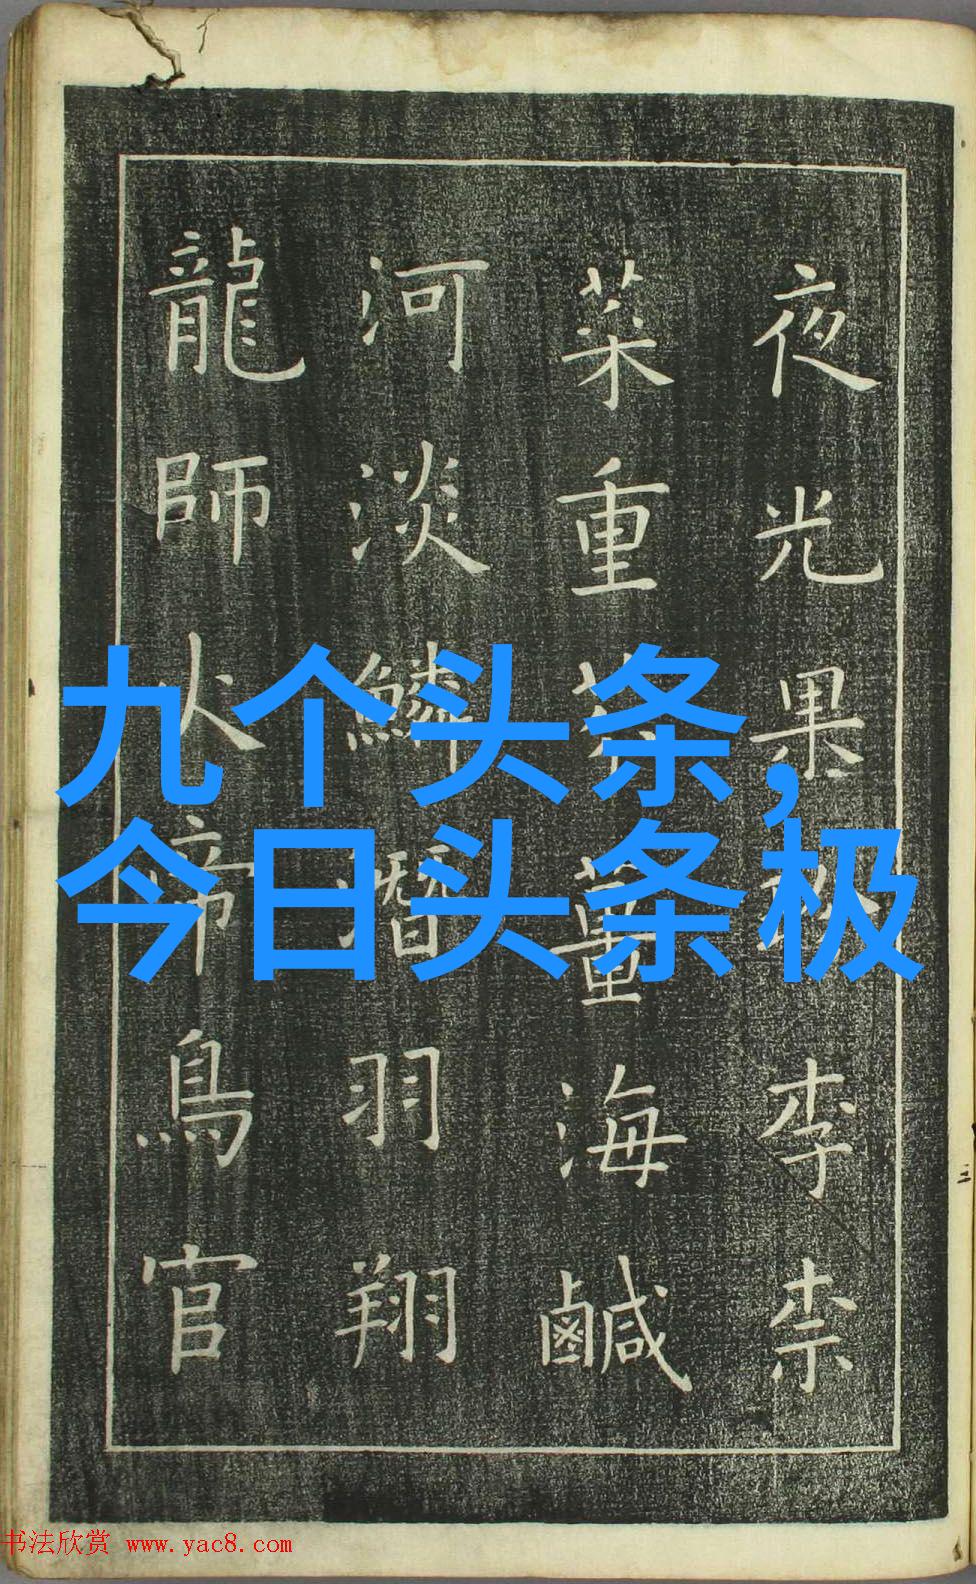 夜光果珍李柰
菜重芥薑海鹹
河淡鱗潛羽翔
龍師火帝鳥官
九个头条,
今日头条极
书法欣赏 www.yac8.com